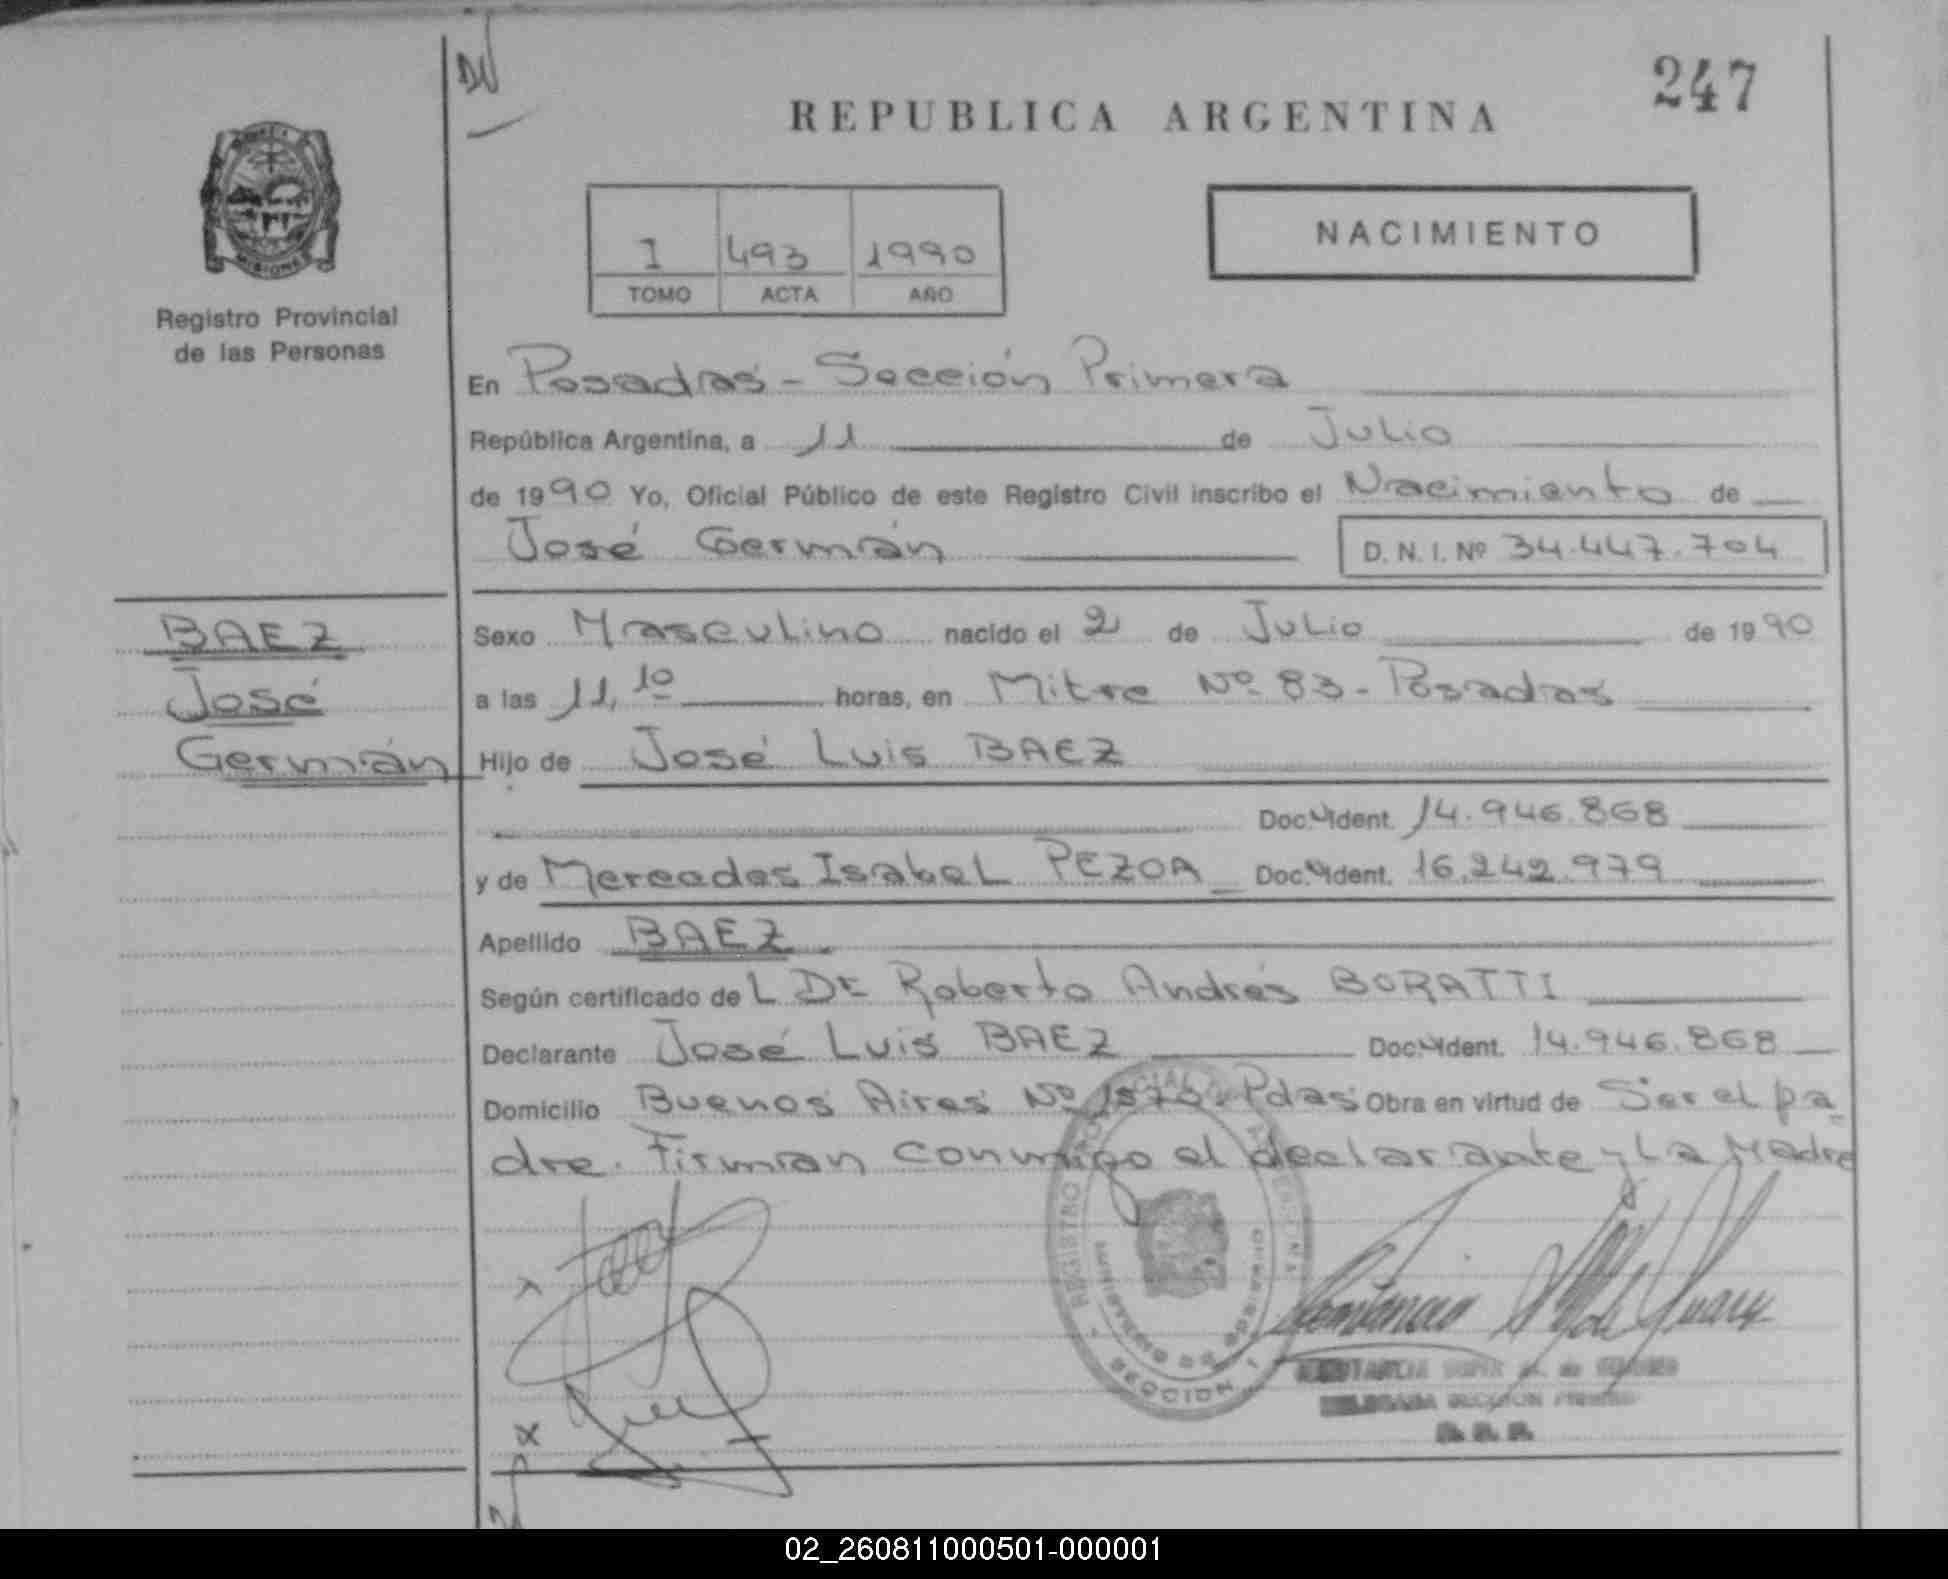 247
REPUBLICA ARGENTINA
MISIONES
Registro Provincial
de las Personas
I 493 1990
TOMO ACTA AÑO
NACIMIENTO
En Posadas - Sección Primera
República Argentina, a 11 de Julio
de 1990 Yo, Oficial Público de este Registro Civil inscribo el Nacimiento de
José Germán D.N.I. Nº 34.447.704
BAEZ
José
Germán
Sexo Masculino nacido el 2 de Julio de 1990
a las 11,10 horas, en Mitre Nº 83 - Posadas
Hijo de José Luis BAEZ
Doc. Ident. 14.946.868
y de Mercedes Isabel PEZOA Doc. Ident. 16.242.979
Apellido BAEZ
Según certificado de L Dr Roberto Andrés BORATTI
Declarante José Luis BAEZ Doc. Ident. 14.946.868
Domicilio Buenos Aires Nº Pdas Obra en virtud de Ser el pa
dre. Firman conmigo el declarante y La Madre
REGISTRO
SECCION 1
02_260811000501-000001